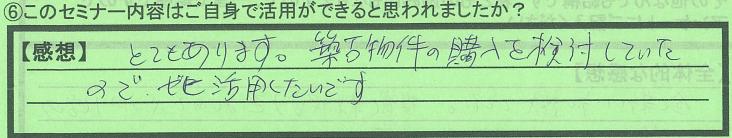 ⑥このセミナー内容はご自身で活用ができると思われましたか？
【感想】 とてもあります。築古物件の購入を検討していた
ので、ぜヒ活用したいです